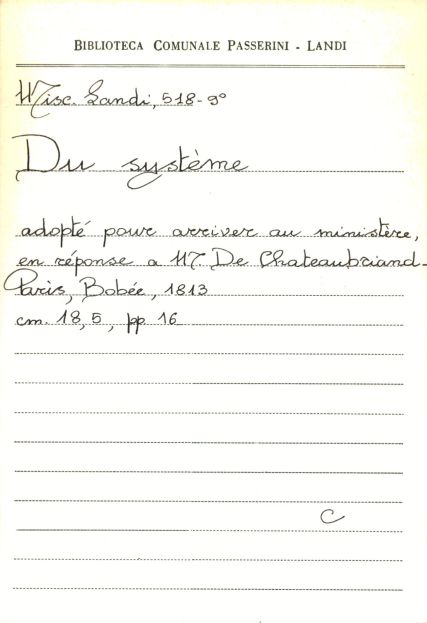 BIBLIOTECA COMUNALE PASSERINI - LANDI
Misc. Landi, 518-9°
Du système
adopté pour arriver au ministère,
en réponse a M De Chateaubriand-
Paris, Bobée, 1813
cm. 18,5, pp. 16
C